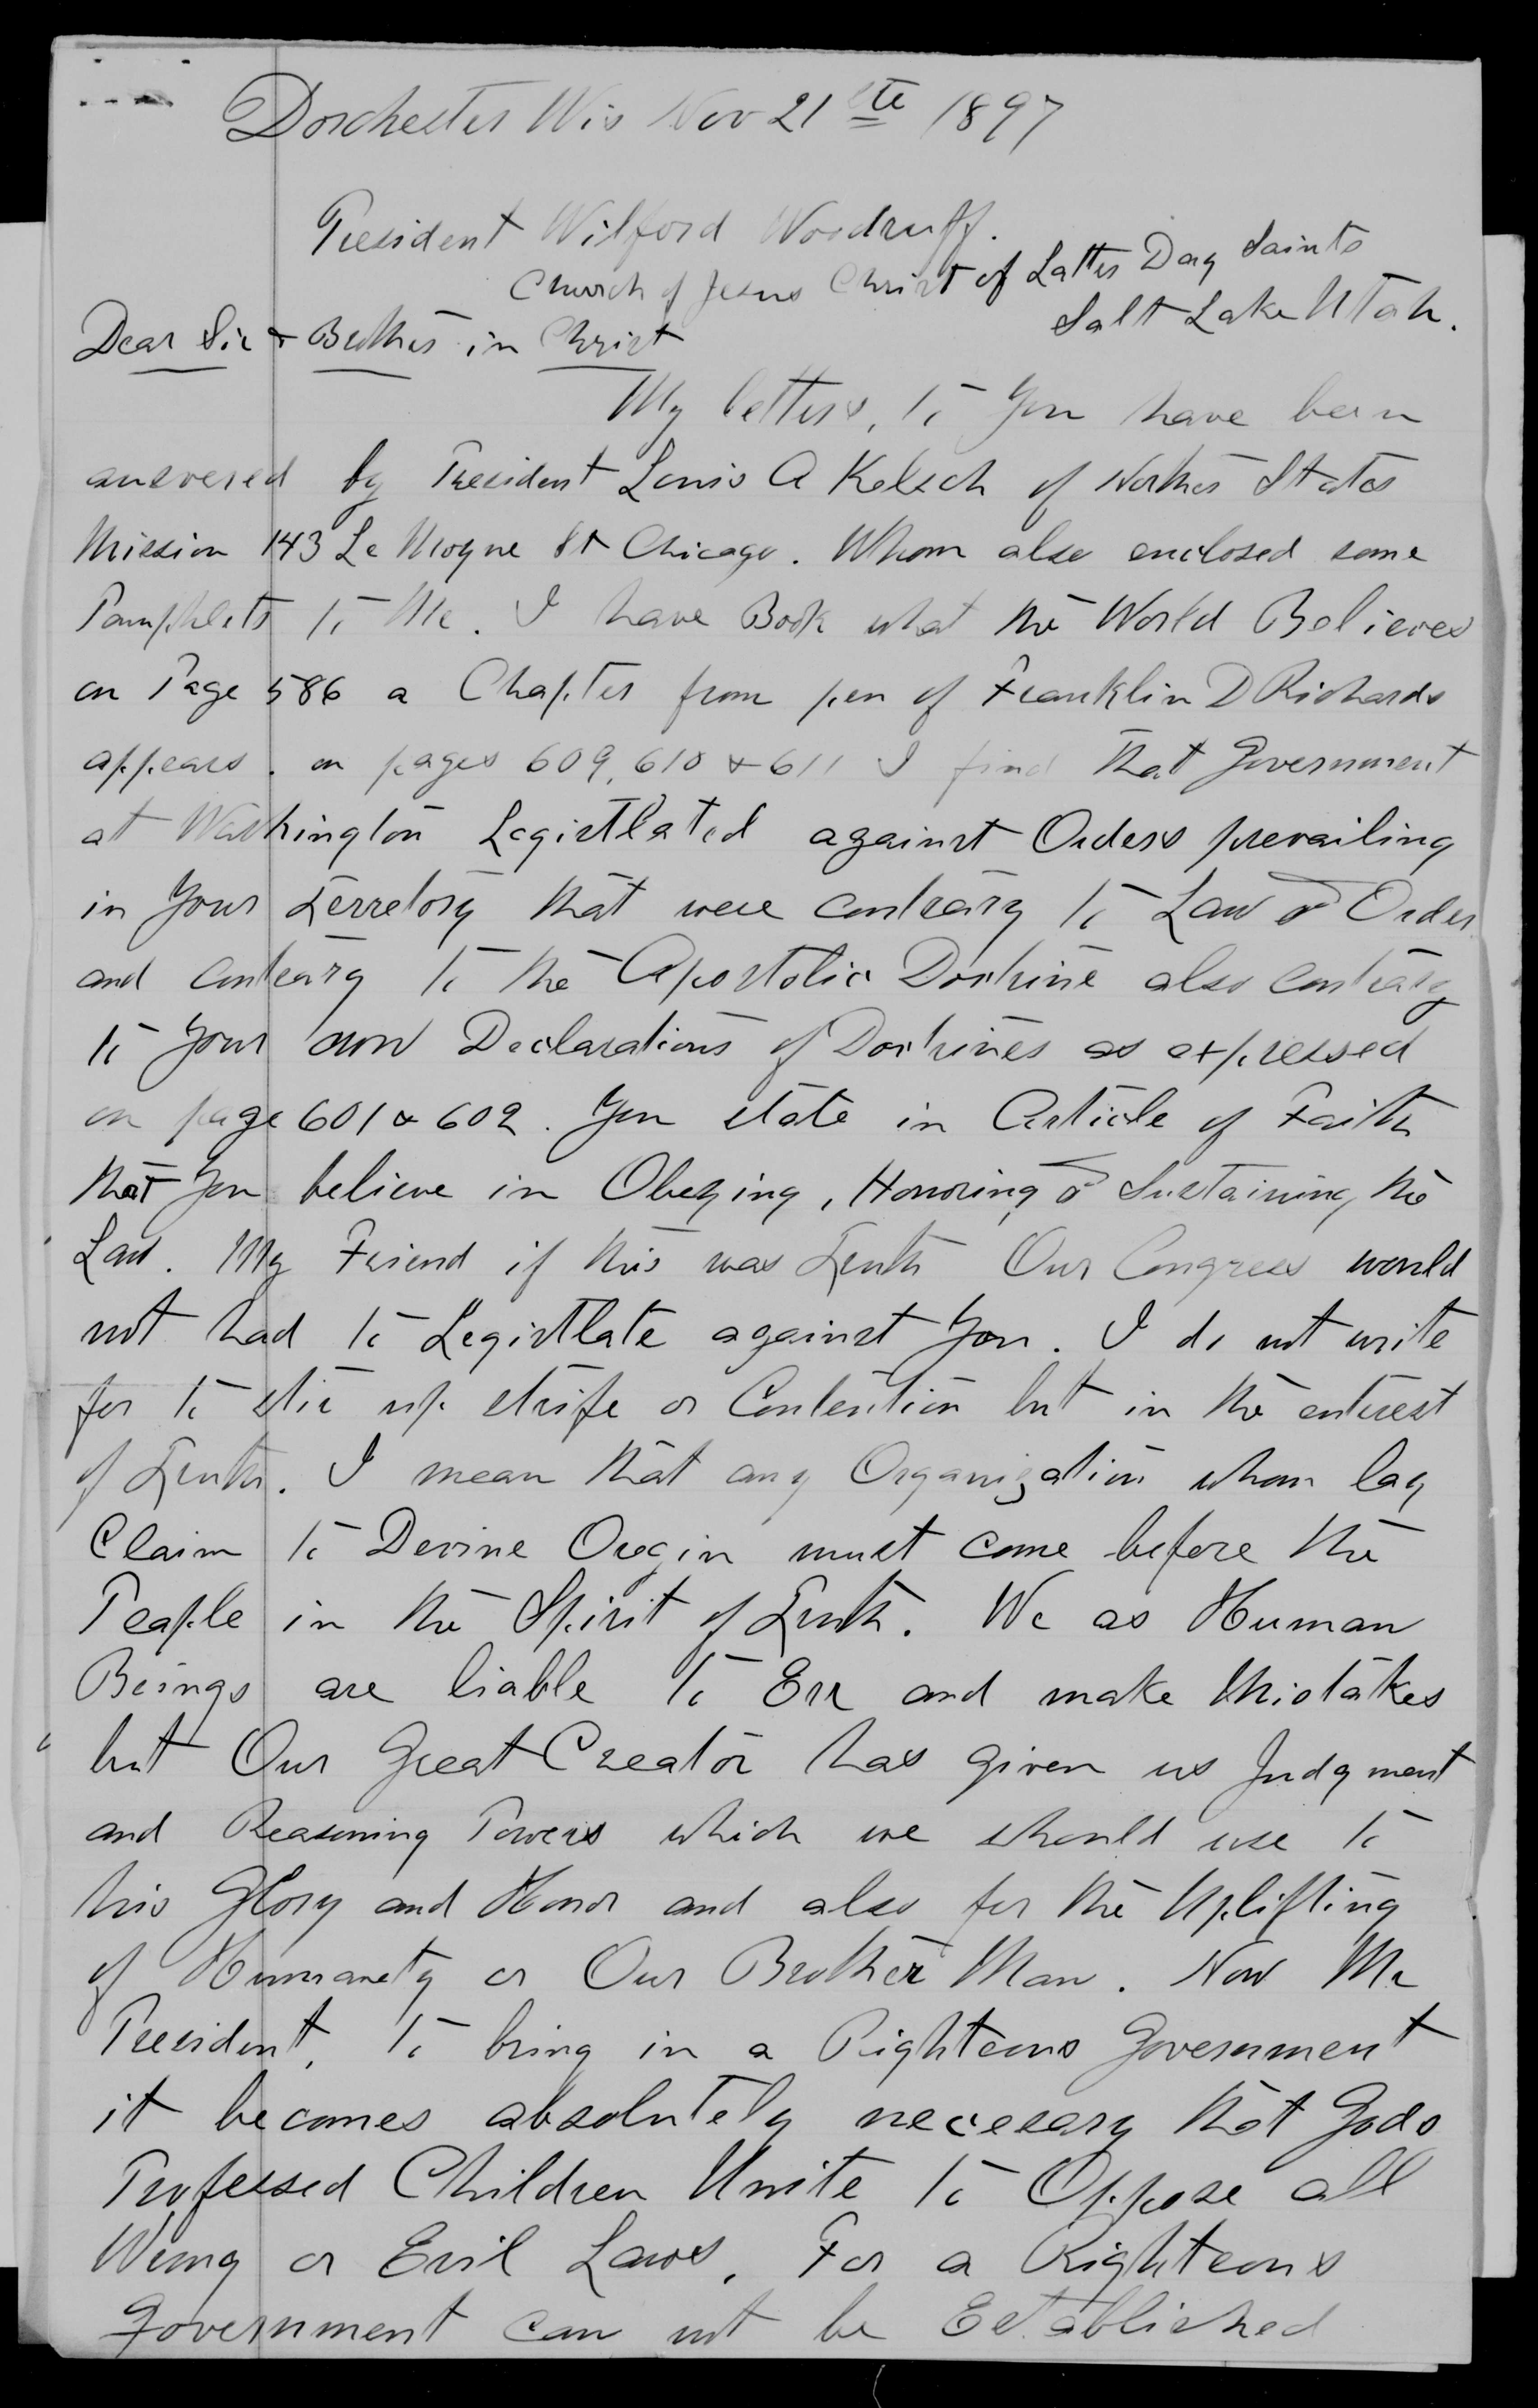 Dorchester Wis Nov 21ste 1897
President Wilford Woodruff.
Church of Jesus Christ of Latter Day Saints
Salt Lake Utah.
Dear Sir & Brother in Christ
My letters, to You have been
answered by President Louis A Kelsch of Northern States
Mission 143 Le Moyne St Chicago. Whom also enclosed some
Pamphlets to Me. I have Book what the World Believes
on Page 586 a Chapter from pen of Franklin D Richards
appears. on pages 609, 610 & 611 I find that Government
at Washington Legistlated against Orders prevailing
in Your Terretory that were contrary to Law & Order
and contrary to the Apostolic Doctrine also contrary
to Your own Declarations of Doctrines as expressed
on page 601 & 602. You state in Article of Faith
that You believe in Obeying, Honoring & Sustaining the
Law. My Friend if this was Truth Our Congress would
not had to Legistlate against You. I do not write
for to stir up strife or Contention but in the enterest
of Truth. I mean that any Organization whom lay
Claim to Devine Oregin must come before the
People in the Spirit of Truth. We as Human
Beings are liable to Err and make Mistakes
but Our Great Creator has given us Judgment
and Reasoning Powers which we should use to
his Glory and Honor and also for the Uplifting
of Humanety or Our Brother Man. Now Mr
President, to bring in a Righteous Government
it becomes absolutely necessary that Gods
Professed Children Unite to Oppose all
Wrong or Evil Laws. For a Righteous
Government can not be Established